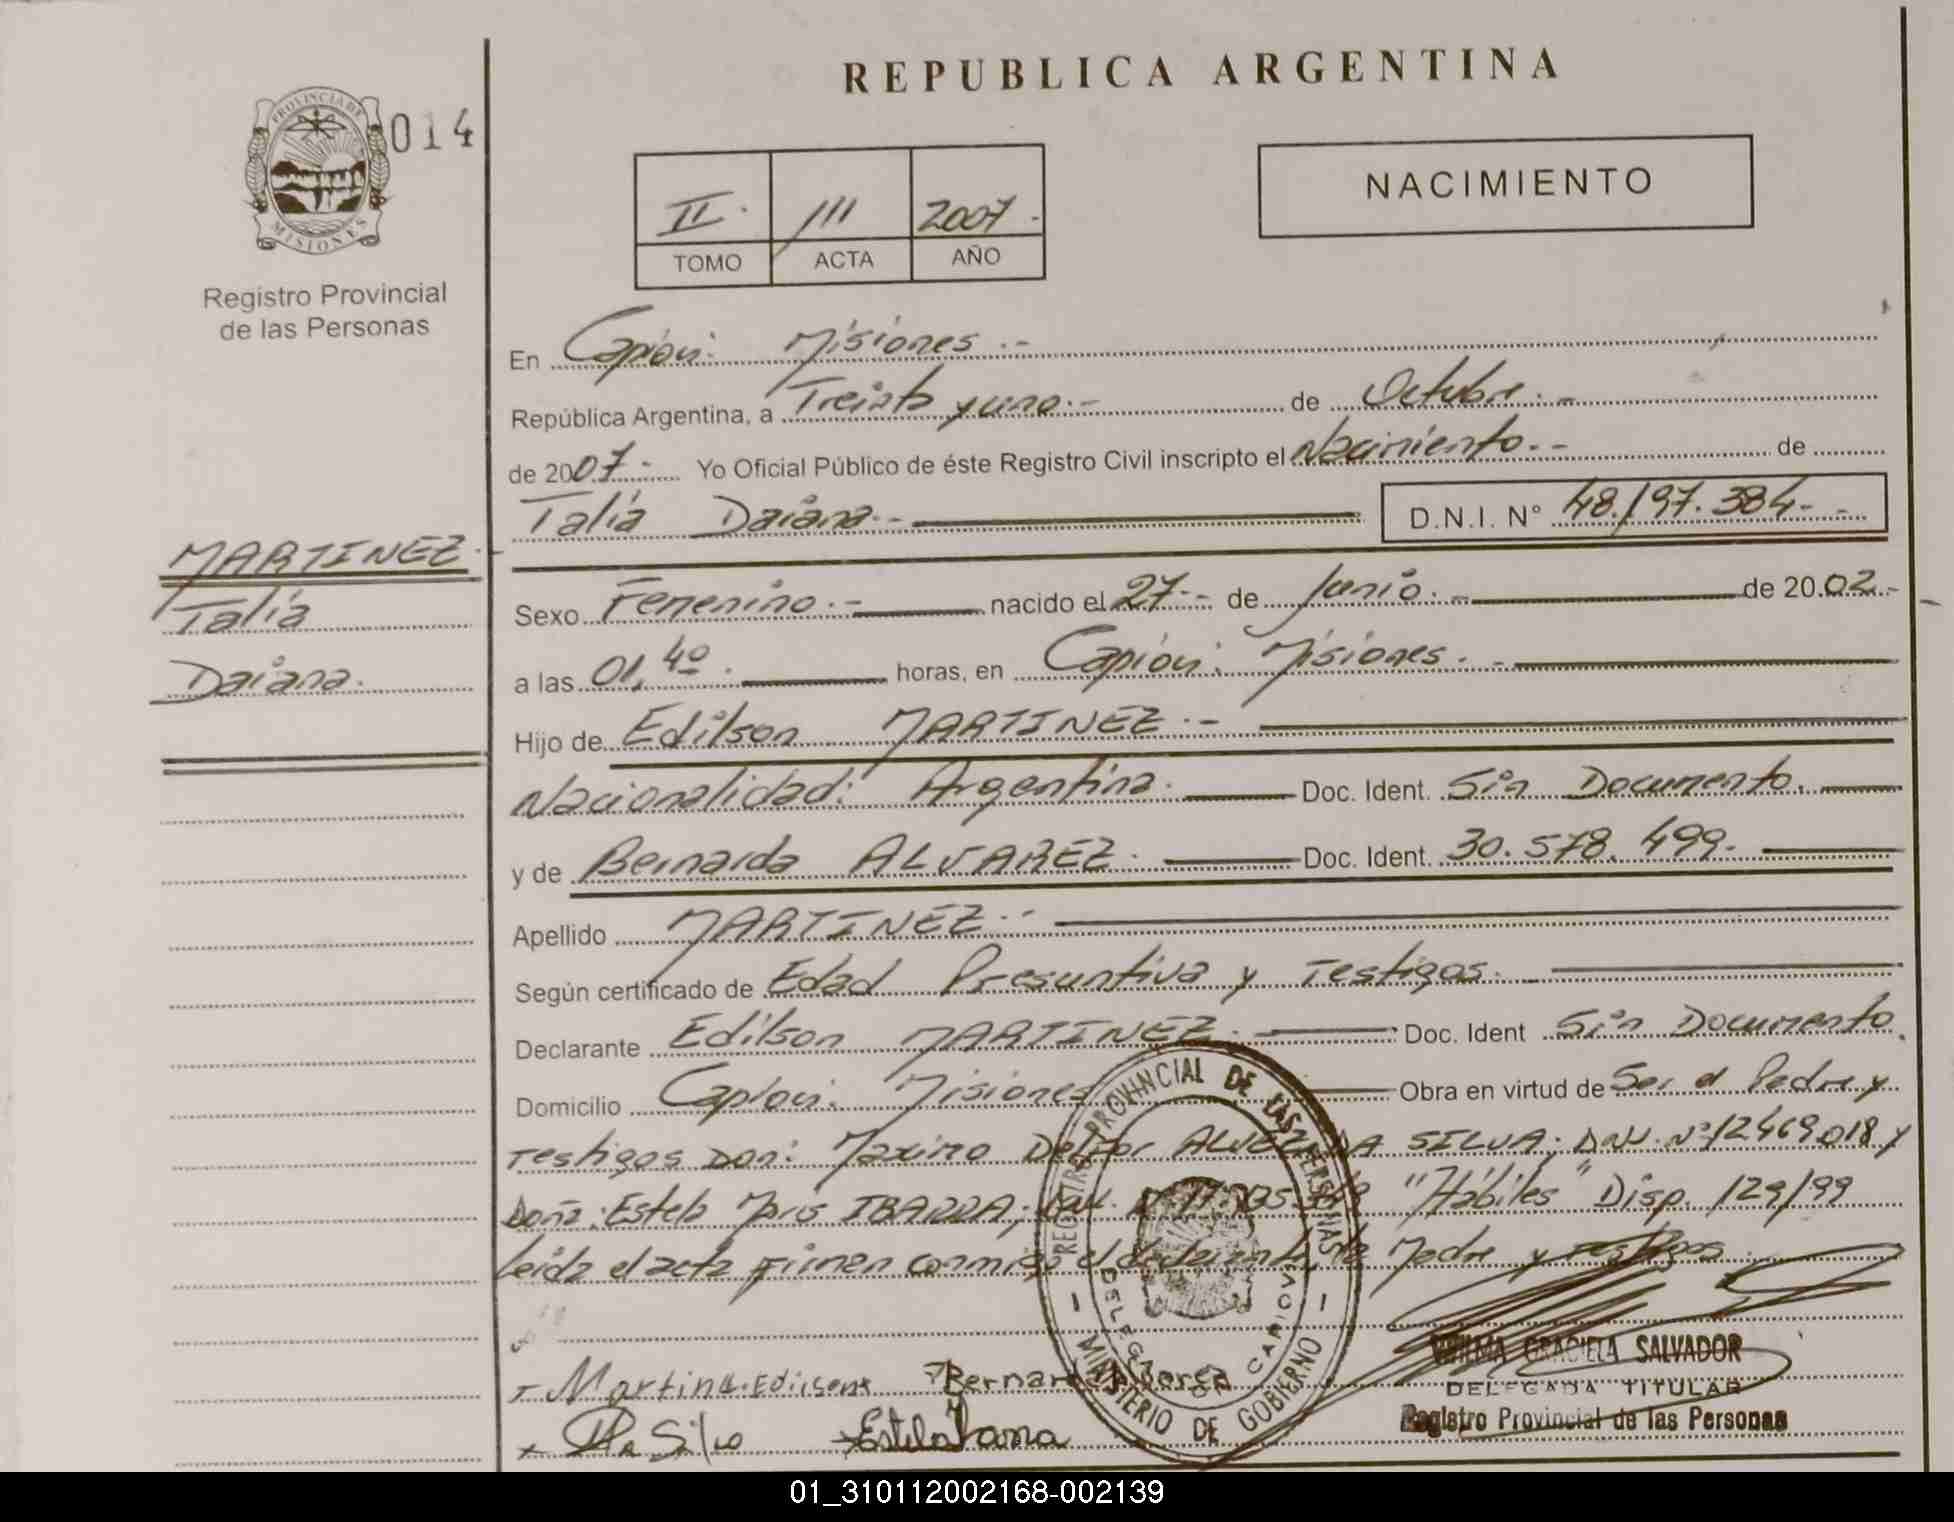 REPUBLICA ARGENTINA
PROVINCIA DE
MISIONES
014
Registro Provincial
de las Personas
II. 111 2007.-
TOMO ACTA AÑO
NACIMIENTO
En Capiovi: Misiones.-
República Argentina, a Treinta y uno.- de Octubre.-
de 2007.- Yo Oficial Público de éste Registro Civil inscripto el Nacimiento.- de
Talia Daiana.- D.N.I. N° 48.197.384.-
MARTINEZ.-
Talia
Daiana.
Sexo Femenino.- nacido el 27.- de Junio.- de 2002.-
a las 01,40. horas, en Capiovi: Misiones.-
Hijo de Edilson MARTINEZ.-
Nacionalidad: Argentina. Doc. Ident. Sin Documento.
y de Bernarda ALVAREZ. Doc. Ident. 30.578.499.
Apellido MARTINEZ.-
Según certificado de Edad Presuntiva y Testigos.
Declarante Edilson MARTINEZ. Doc. Ident Sin Documento.
Domicilio Capiovi. Misiones Obra en virtud de Ser el Padre y
Testigos Don: Maximo DA SILVA; DNI. N° 12469018 y
Doña: Estela Maris IBARRA; "Hábiles" Disp. 129/99
Leida el acta firman conmigo el declarante, la Madre y testigos.
REGISTRO PROVINCIAL DE LAS PERSONAS
MINISTERIO DE GOBIERNO
DELEGACION CAPIOVI
GRACIELA SALVADOR
DELEGADA TITULAR
Registro Provincial de las Personas
Da Silva
01_310112002168-002139